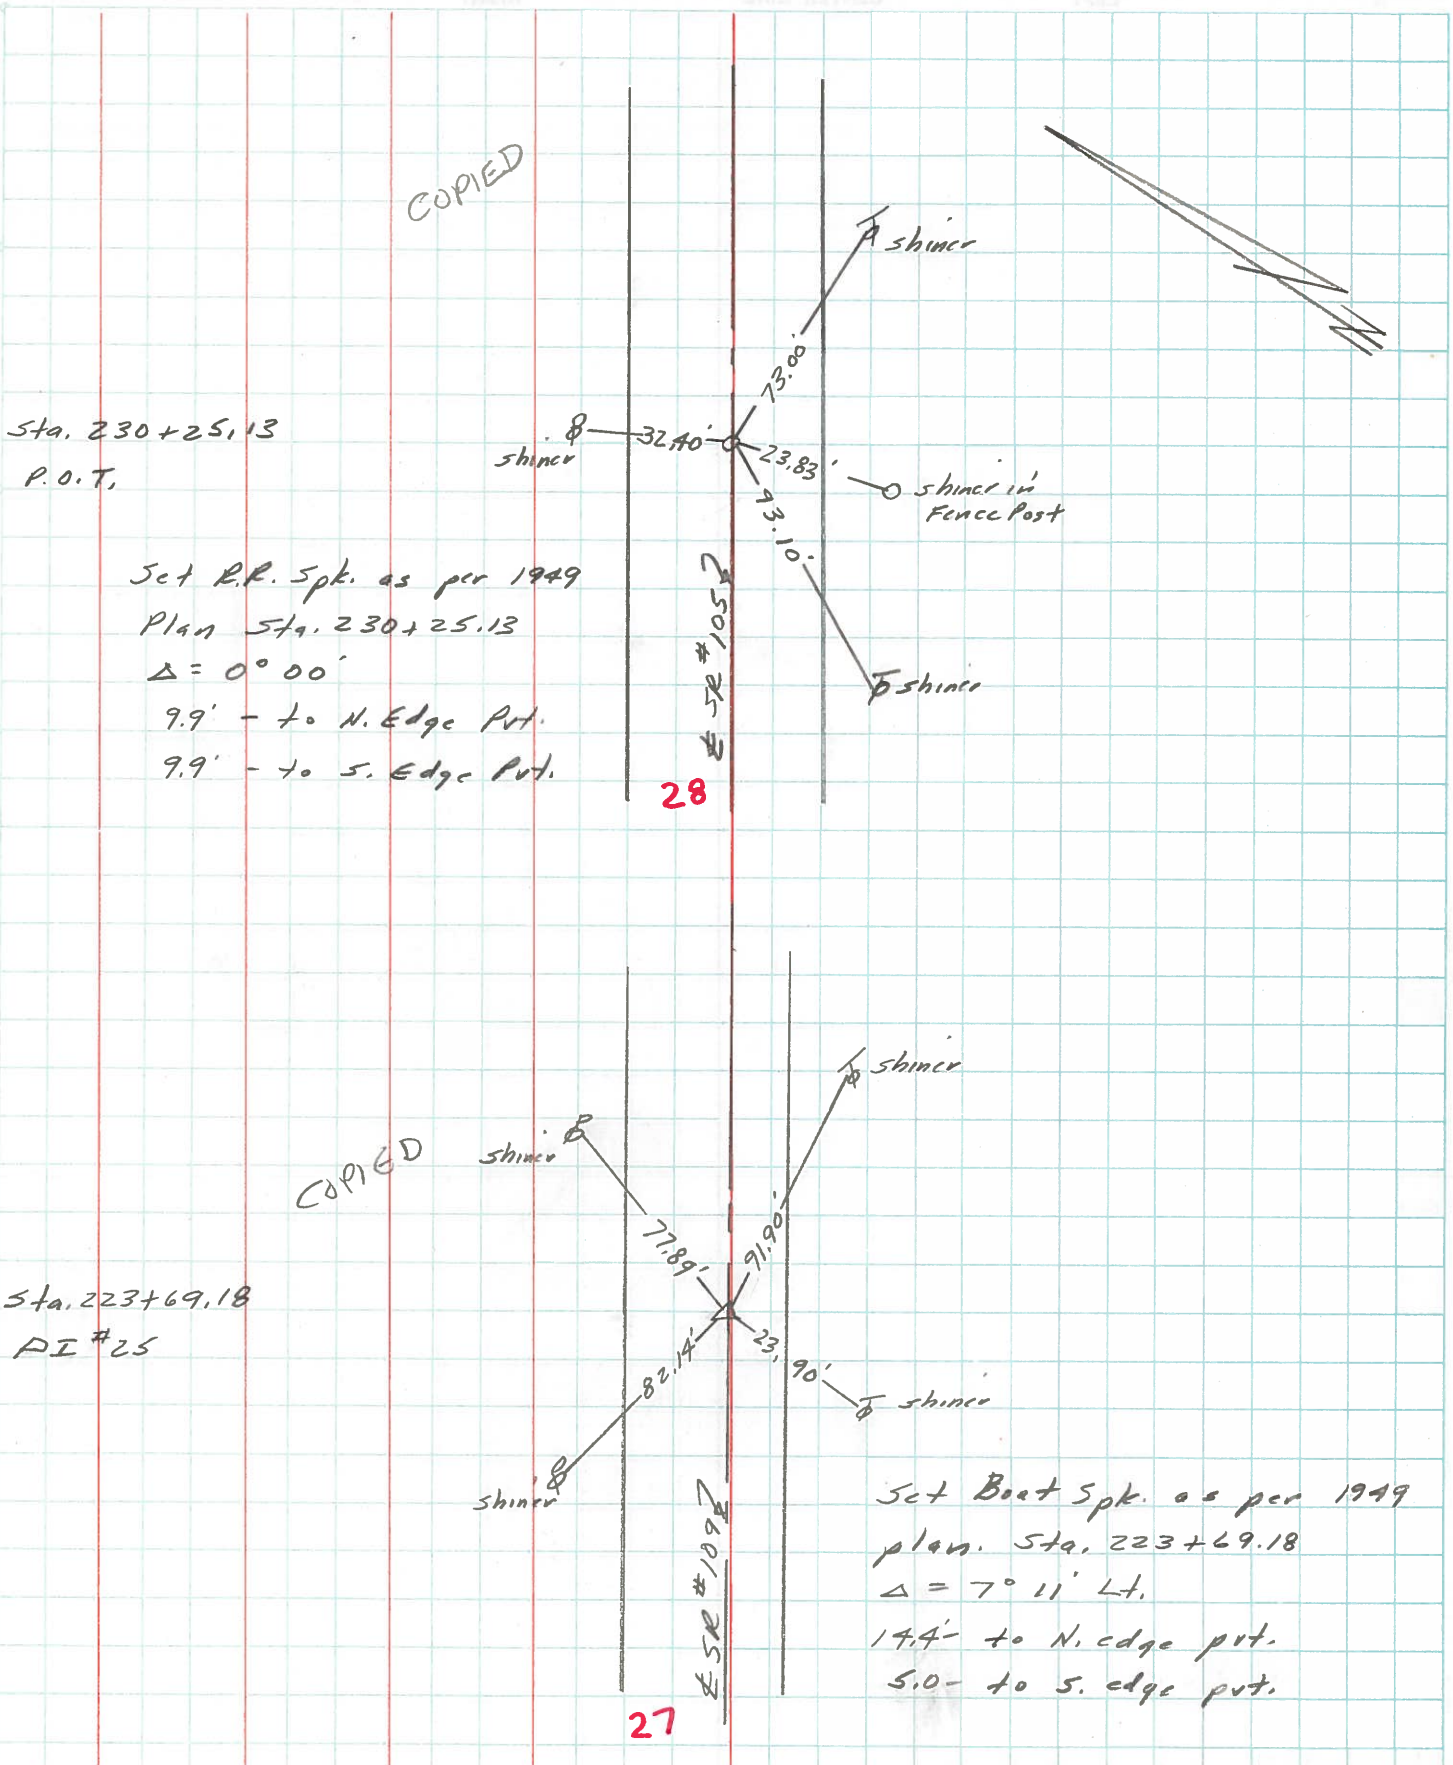 COPIED
shiner
73.00'
Sta. 230+25.13
P.O.T.
shiner
32.40'
23.83'
shiner in
Fence Post
93.10'
Set R.R. Spk. as per 1949
Plan Sta. 230+25.13
Δ = 0° 00'
9.9' - to N. Edge Pvt.
9.9' - to S. Edge Pvt.
℄ SR #105
shiner
28
shiner
shiner
COPIED
77.89'
91.90'
Sta. 223+69.18
PI #25
82.14'
23.90'
shiner
shiner
℄ SR #109
Set Boat Spk. as per 1949
plan. Sta. 223+69.18
Δ = 7° 11' Lt.
14.4'- to N. edge pvt.
5.0- to S. edge pvt.
27